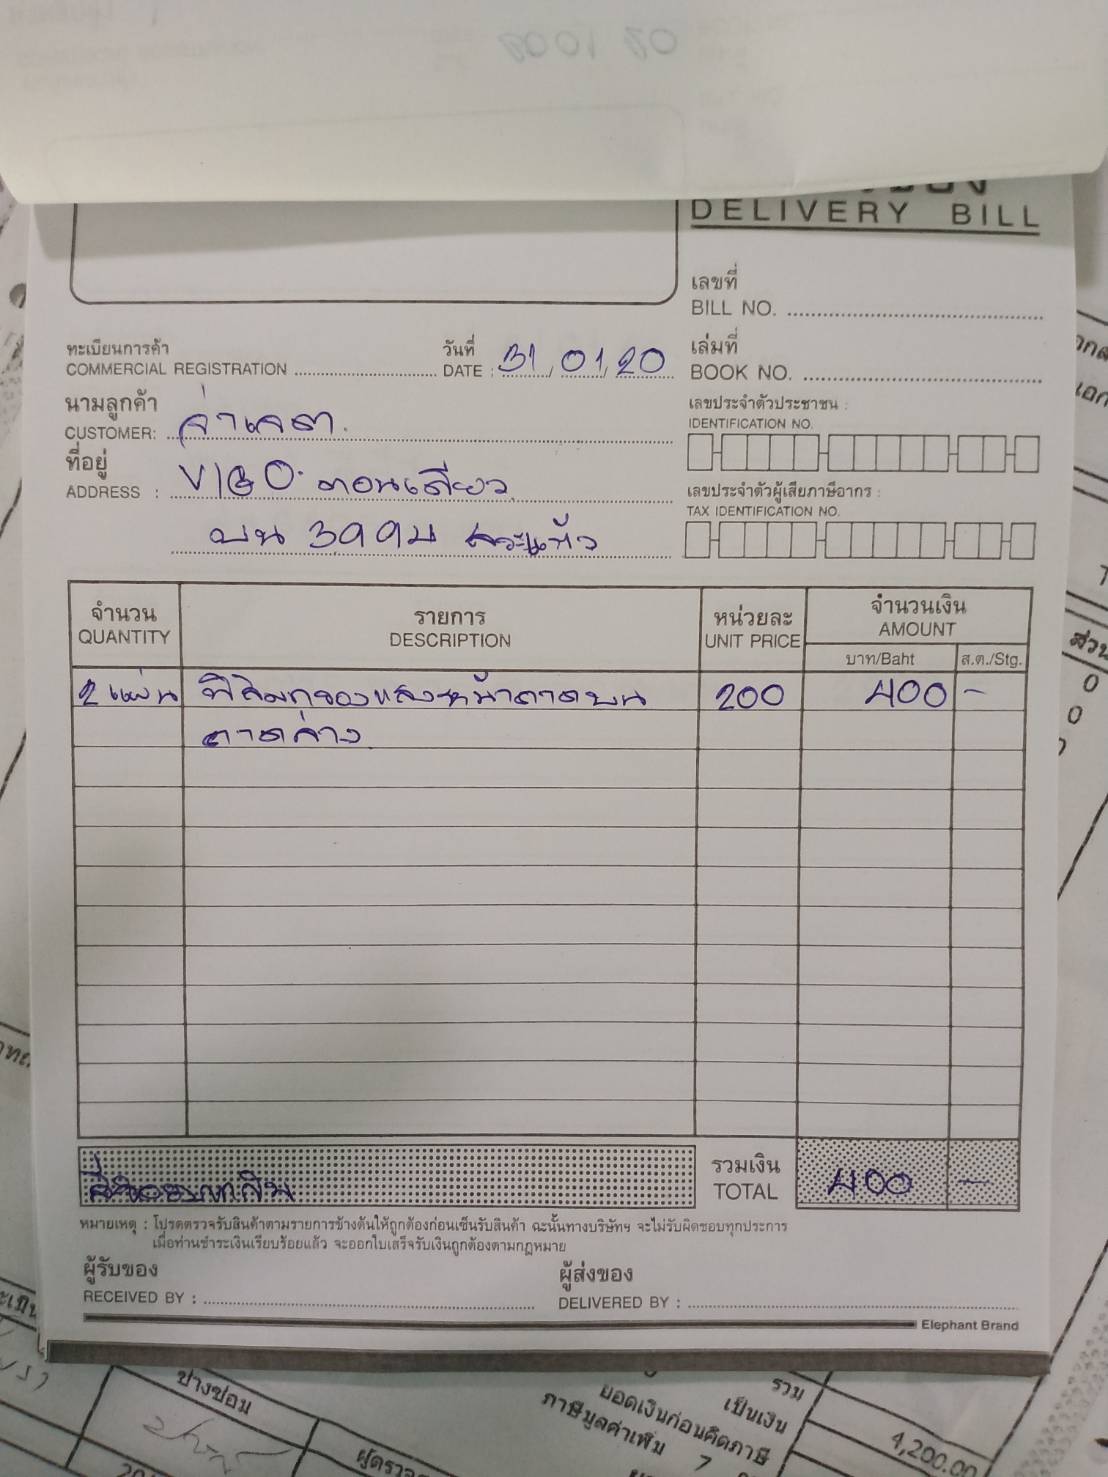 DELIVERY BILL
เลขที่
BILL NO.
ทะเบียนการค้า
COMMERCIAL REGISTRATION
วันที่
DATE : 31/01/20
เล่มที่
BOOK NO.
นามลูกค้า
CUSTOMER: จ่าเจต.
ที่อยู่
ADDRESS : VIGO. ตอนเดียว
บน 3ๆๆน สระแก้ว
เลขประจำตัวประชาชน :
IDENTIFICATION NO.
เลขประจำตัวผู้เสียภาษีอากร :
TAX IDENTIFICATION NO.
จำนวน
QUANTITY
รายการ
DESCRIPTION
หน่วยละ
UNIT PRICE
จำนวนเงิน
AMOUNT
บาท/Baht
ส.ต./Stg.
2 แผ่น ฟิล์มกรองแสงหน้าถาดบน 200 400 -
ถาดล่าง
รวมเงิน
TOTAL 400 -
หมายเหตุ : โปรดตรวจรับสินค้าตามรายการข้างต้นให้ถูกต้องก่อนเซ็นรับสินค้า ฉะนั้นทางบริษัทฯ จะไม่รับผิดชอบทุกประการ
เมื่อท่านชำระเงินเรียบร้อยแล้ว จะออกใบเสร็จรับเงินถูกต้องตามกฎหมาย
ผู้รับของ
RECEIVED BY :
ผู้ส่งของ
DELIVERED BY :
Elephant Brand
ช่างซ่อม
รวม
เป็นเงิน
ยอดเงินก่อนคิดภาษี
ภาษีมูลค่าเพิ่ม 7
4,200.00